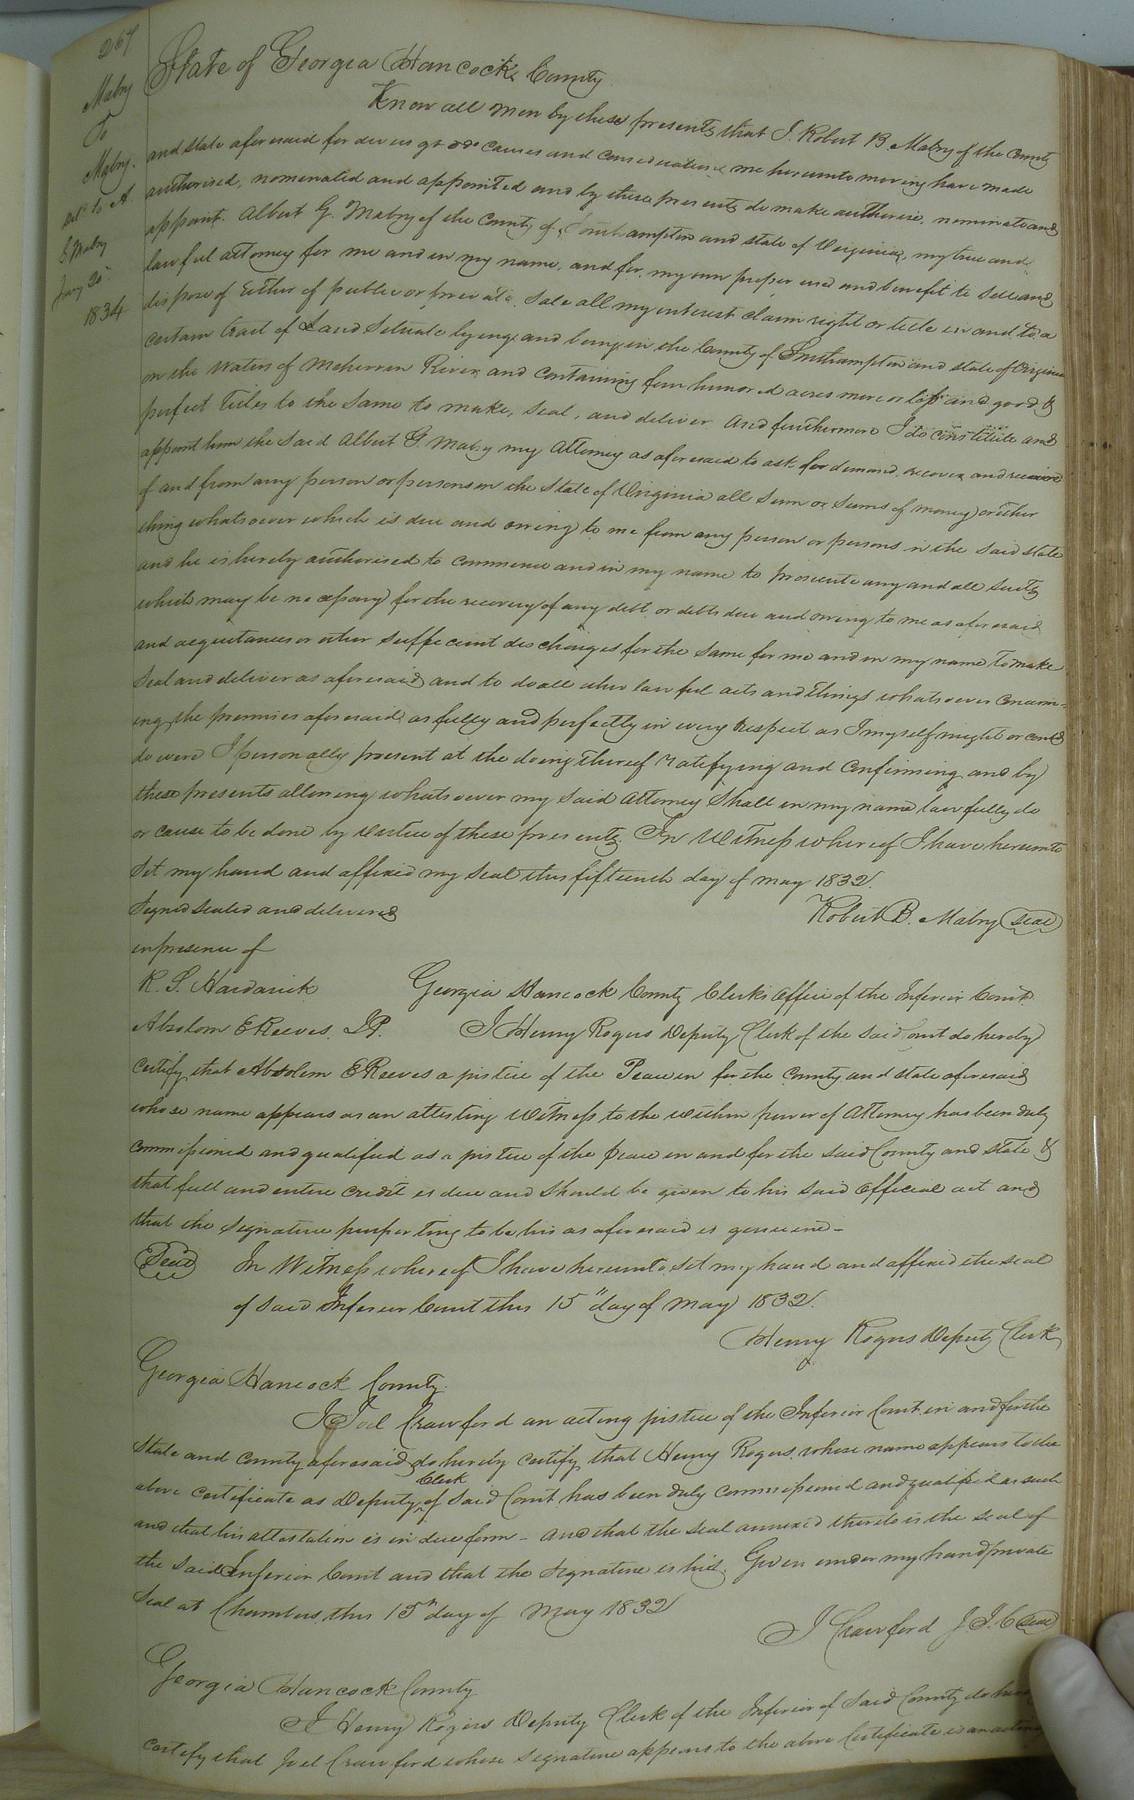 267
Mabry
To
Mabry.
del. to A
E Mabry
Jany 20
1834
State of Georgia Hancock County
Know all men by these presents that I Robert B. Mabry of the County
and state aforesaid for divers gd & causes and considerations me hereunto moving have made
authorised, nominated and appointed and by these presents do make authorise, nominate and
appoint Albert G. Mabry of the County of Southampton and state of Virginia, my true and
lawful attorney for me and in my name, and for my own proper use and benefit to sell and
dispose of Either of public or private sale all my interest claim right or title in and to a
certain tract of Land Situate lying and being in the County of Southampton and state of Virginia
on the Waters of Meherrin River and containing four hundred acres more or less and good &
perfect titles to the same to make, seal, and deliver And furthermore I do constitute and
appoint him the said Albert G Mabry my Attorney as aforesaid to ask for demand recover and receive
of and from any person or persons in the State of Virginia all Sum or Sums of money or other
thing whatsoever which is due and owing to me from any person or persons in the said state
and he is hereby authorised to commence and in my name to prosecute any and all suits
which may be necessary for the recovery of any debt or debts due and owing to me as aforesaid
and acquittances or other sufficient discharges for the same for me and in my name to make
Seal and deliver as aforesaid and to do all other lawful acts and things whatsoever concern-
ing the premises aforesaid as fully and perfectly in every respect as I myself might or could
do were I personally present at the doing thereof ratifying and confirming and by
these presents allowing whatsoever my said Attorney Shall in my name lawfully do
or cause to be done by virtue of these presents. In Witness whereof I have hereunto
set my hand and affixed my seal this fifteenth day of May 1832.
Signed sealed and delivered
Robert B. Mabry Seal
in presence of
R. S. Hardwick
Absolom E Reeves. J.P.
Georgia Hancock County Clerks Office of the Inferior Court.
I Henry Rogers Deputy Clerk of the said Court do hereby
certify that Absolem E Reeves a justice of the Peace in for the County and state aforesaid
whose name appears as an attesting Witness to the within power of Attorney has been duly
commissioned and qualified as a justice of the peace in and for the said County and state &
that full and entire credit is due and should be given to his said official act and
that the signature purporting to be his as aforesaid is genuine-
Seal In Witness whereof I have hereunto set my hand and affixed the seal
of said Inferior Court this 15" day of May 1832.
Henry Rogers Deputy Clerk
Georgia Hancock County
I Joel Crawford an acting justice of the Inferior Court in and for the
State and County aforesaid do hereby certify that Henry Rogers whose name appears to the
Clerk
above certificate as Deputy ^ of said Court has been duly commissioned and qualified as such
and that his attestation is in due form - and that the seal annexed thereto is the seal of
the said Inferior Court and that the signature is his. Given under my hand private
Seal at Chambers this 15th day of May 1832
J Crawford J. I. C Seal
Georgia Hancock County
I Henry Rogers Deputy Clerk of the Inferior of said County do
certify that Joel Crawford whose signature appears to the above Certificate is an